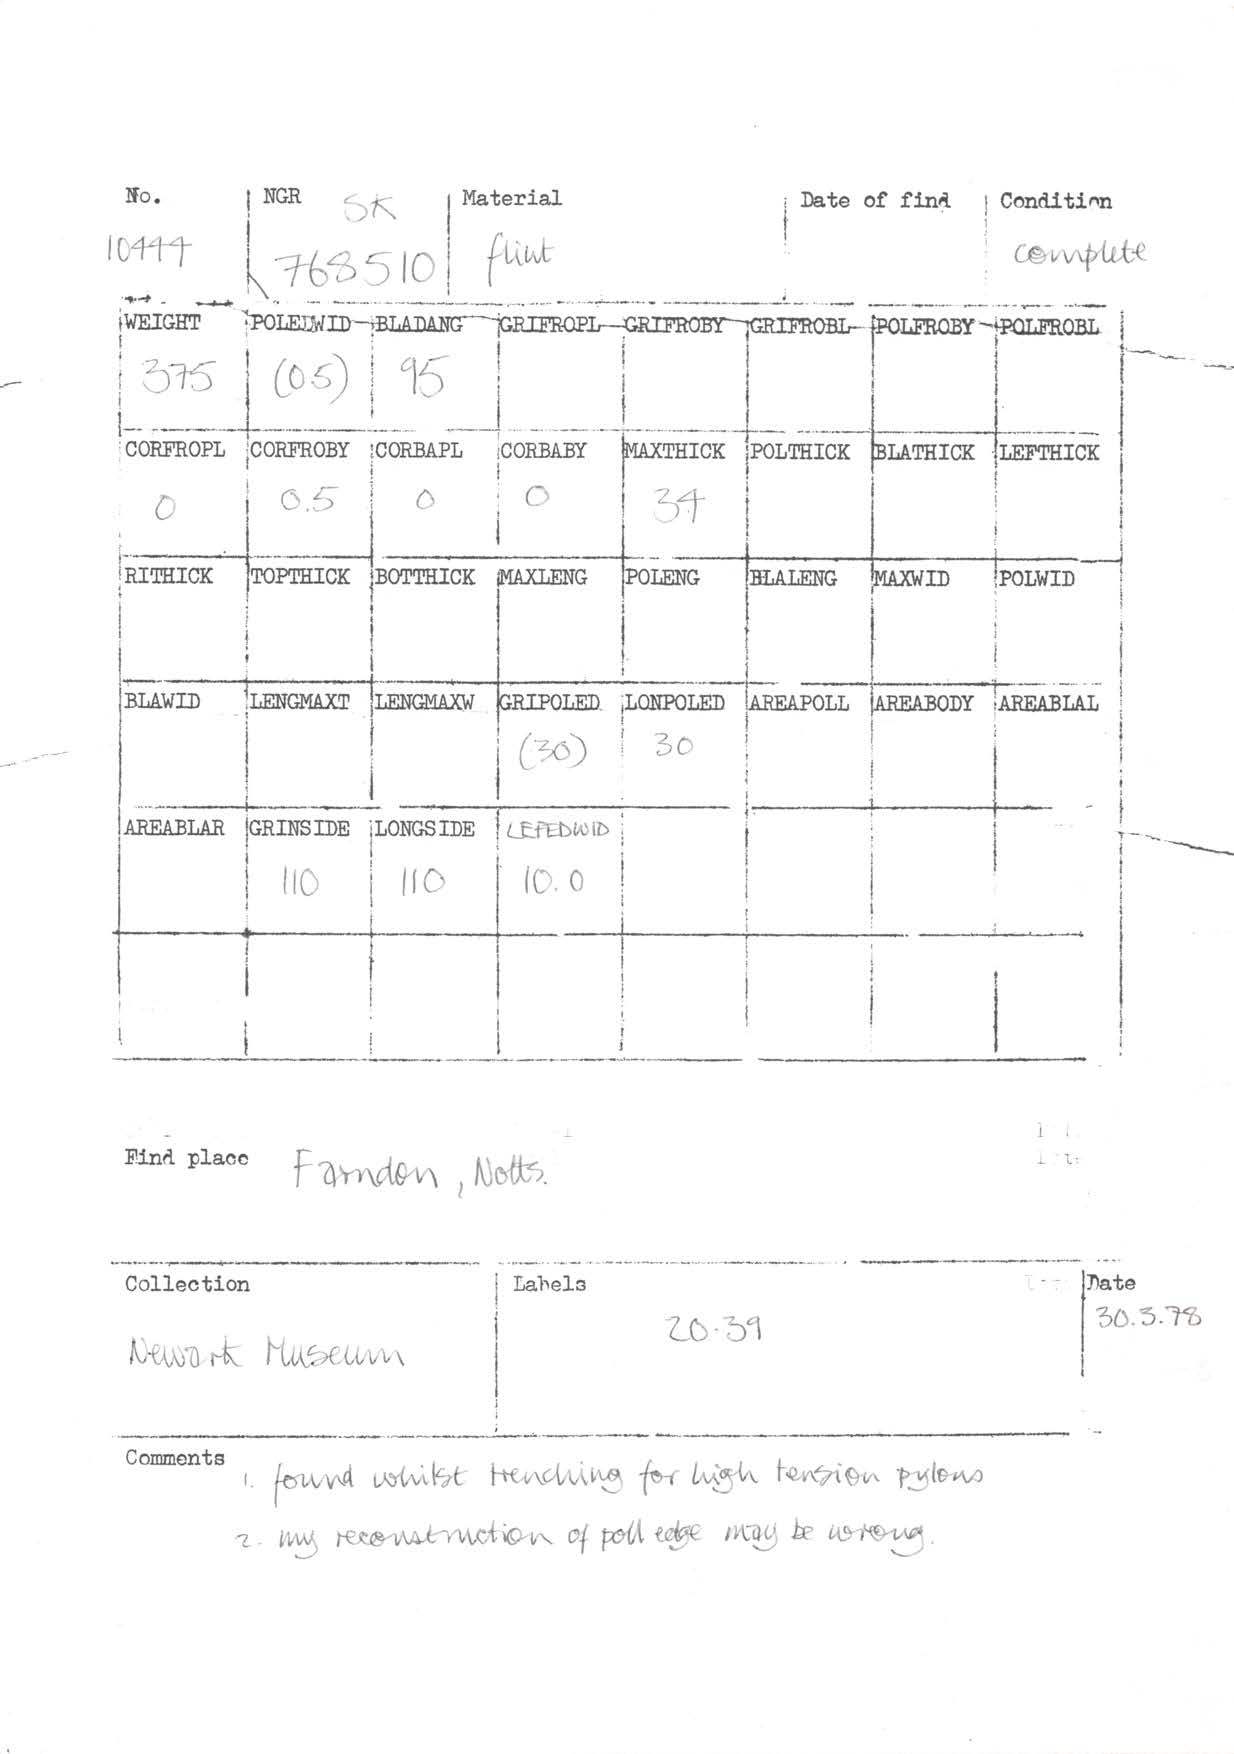 No. NGR SK Material Date of find Condition
10444 768510 flint complete
WEIGHT POLEDWID BLADANG GRIFROPL GRIFROBY GRIFROBL POLFROBY POLFROBL
375 (0.5) 95
CORFROPL CORFROBY CORBAPL CORBABY MAXTHICK POLTHICK BLATHICK LEFTHICK
0 0.5 0 0 34
RITHICK TOPTHICK BOTTHICK MAXLENG POLENG BLALENG MAXWID POLWID
BLAWID LENGMAXT LENGMAXW GRIPOLED LONPOLED AREAPOLL AREABODY AREABLAL
(30) 30
AREABLAR GRINSIDE LONGSIDE LEFEDWID
110 110 10.0
Find place Farndon, Notts.
Collection Labels Date
Newark Museum 20.39 30.3.78
Comments 1. found whilst trenching for high tension pylons
2. my reconstruction of poll edge may be wrong.